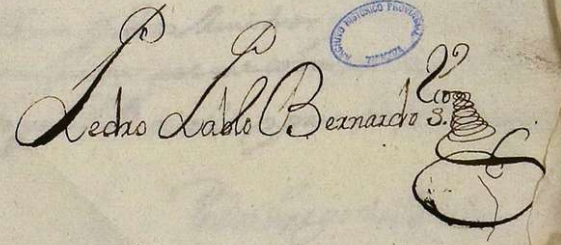 ARCHIVO HISTORICO PROVINCIAL
Pedro Pablo Bernardo